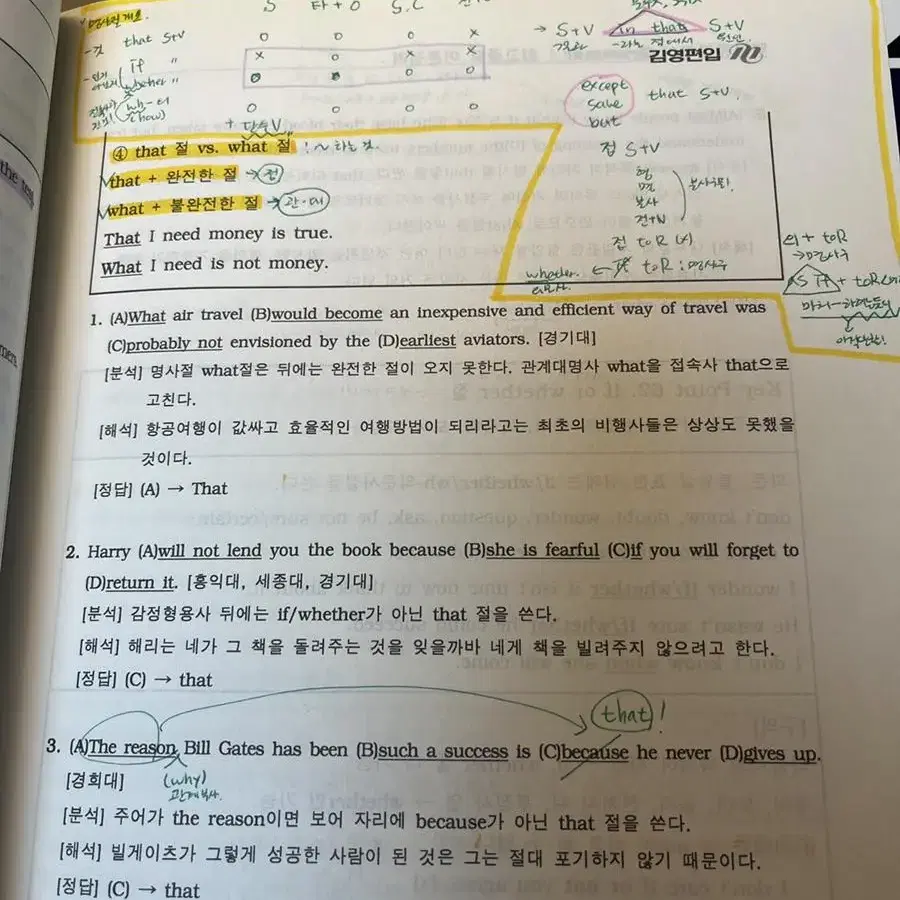 명사절 개요.
S 타+O S.C
-것 that S+V o o o x
if 〃 x o x x
whether 〃 o o o o
wh-어 o o o o
(how)
+ 단수V
→ S+V in that S+V
-라는 점에서
김영편입
except
save that S+V.
but
접 S+V
형
명
부사
전+N
접 toR
whether. ← if toR : 명사구
의 + toR
→ 명사구
as if + toR
④ that 절 vs. what 절 ! ~하는 것
that + 완전한 절 → 접
what + 불완전한 절 → 관·대
That I need money is true.
What I need is not money.
1. (A)What air travel (B)would become an inexpensive and efficient way of travel was
(C)probably not envisioned by the (D)earliest aviators. [경기대]
[분석] 명사절 what절은 뒤에는 완전한 절이 오지 못한다. 관계대명사 what을 접속사 that으로
고친다.
[해석] 항공여행이 값싸고 효율적인 여행방법이 되리라고는 최초의 비행사들은 상상도 못했을
것이다.
[정답] (A) → That
2. Harry (A)will not lend you the book because (B)she is fearful (C)if you will forget to
(D)return it. [홍익대, 세종대, 경기대]
[분석] 감정형용사 뒤에는 if/whether가 아닌 that 절을 쓴다.
[해석] 해리는 네가 그 책을 돌려주는 것을 잊을까바 네게 책을 빌려주지 않으려고 한다.
[정답] (C) → that
that!
3. (A)The reason Bill Gates has been (B)such a success is (C)because he never (D)gives up.
[경희대] (why)
관계부사.
[분석] 주어가 the reason이면 보어 자리에 because가 아닌 that 절을 쓴다.
[해석] 빌게이츠가 그렇게 성공한 사람이 된 것은 그는 절대 포기하지 않기 때문이다.
[정답] (C) → that